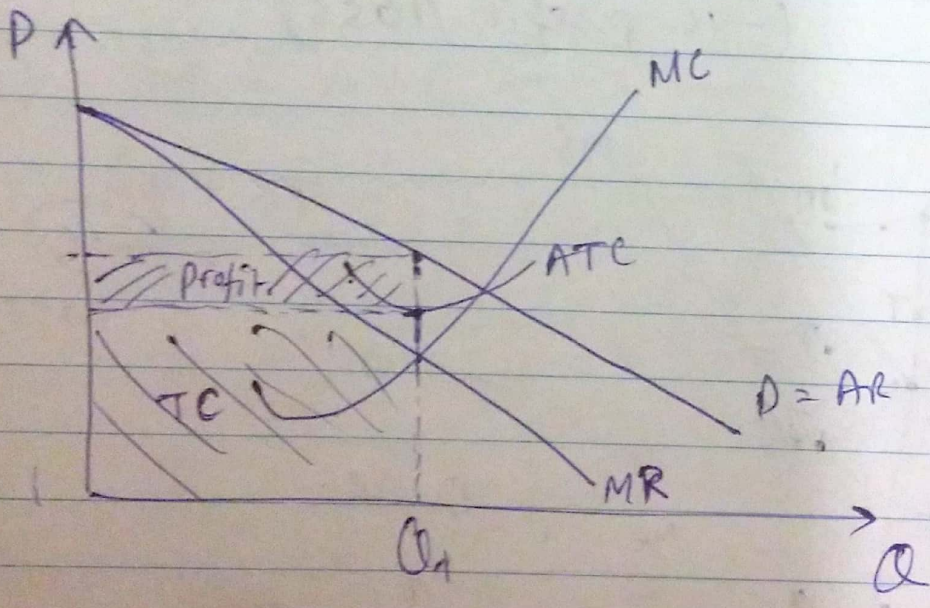 P
MC
ATC
Profit
TC
D = AR
MR
Q1
Q